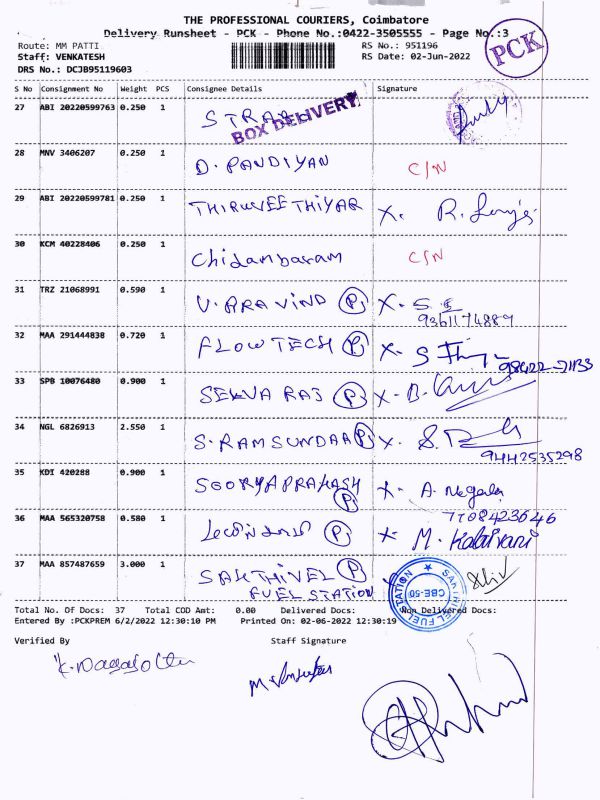 THE PROFESSIONAL COURIERS, Coimbatore
Delivery Runsheet - PCK - Phone No.:0422-3505555 - Page No.:3
PCK
Route: MM PATTI
RS No.: 951196
Staff: VENKATESH
RS Date: 02-Jun-2022
DRS No.: DCJB95119603
S No Consignment No Weight PCS Consignee Details Signature
27 ABI 20220599763 0.250 1
BOX DELIVERY
28 MNV 3406207 0.250 1 D. PANDIYAN C/N
29 ABI 20220599781 0.250 1 THIRUVEETHIYAR X. R.
30 KCM 40228406 0.250 1 Chidambaram C/N
31 TRZ 21068991 0.590 1 V. ARAVIND P X.
9361174889
32 MAA 291444838 0.720 1 FLOWTECH P X.
98422-71133
33 SPB 10076480 0.900 1 SELVA RAJ P X.
34 NGL 6826913 2.550 1 S. RAMSUNDAR P X.
9442535298
35 KDI 420288 0.900 1 SOORYAPRAKASH P X
7708423646
36 MAA 565320758 0.580 1 P X M. Kalaivani
37 MAA 857487659 3.000 1 SAKTHIVEL P
FUEL STATION
SAKTHIVEL FUEL STATION CBE-50
Total No. Of Docs: 37 Total COD Amt: 0.00 Delivered Docs: Non Delivered Docs:
Entered By :PCKPREM 6/2/2022 12:30:10 PM Printed On: 02-06-2022 12:30:19
Verified By Staff Signature